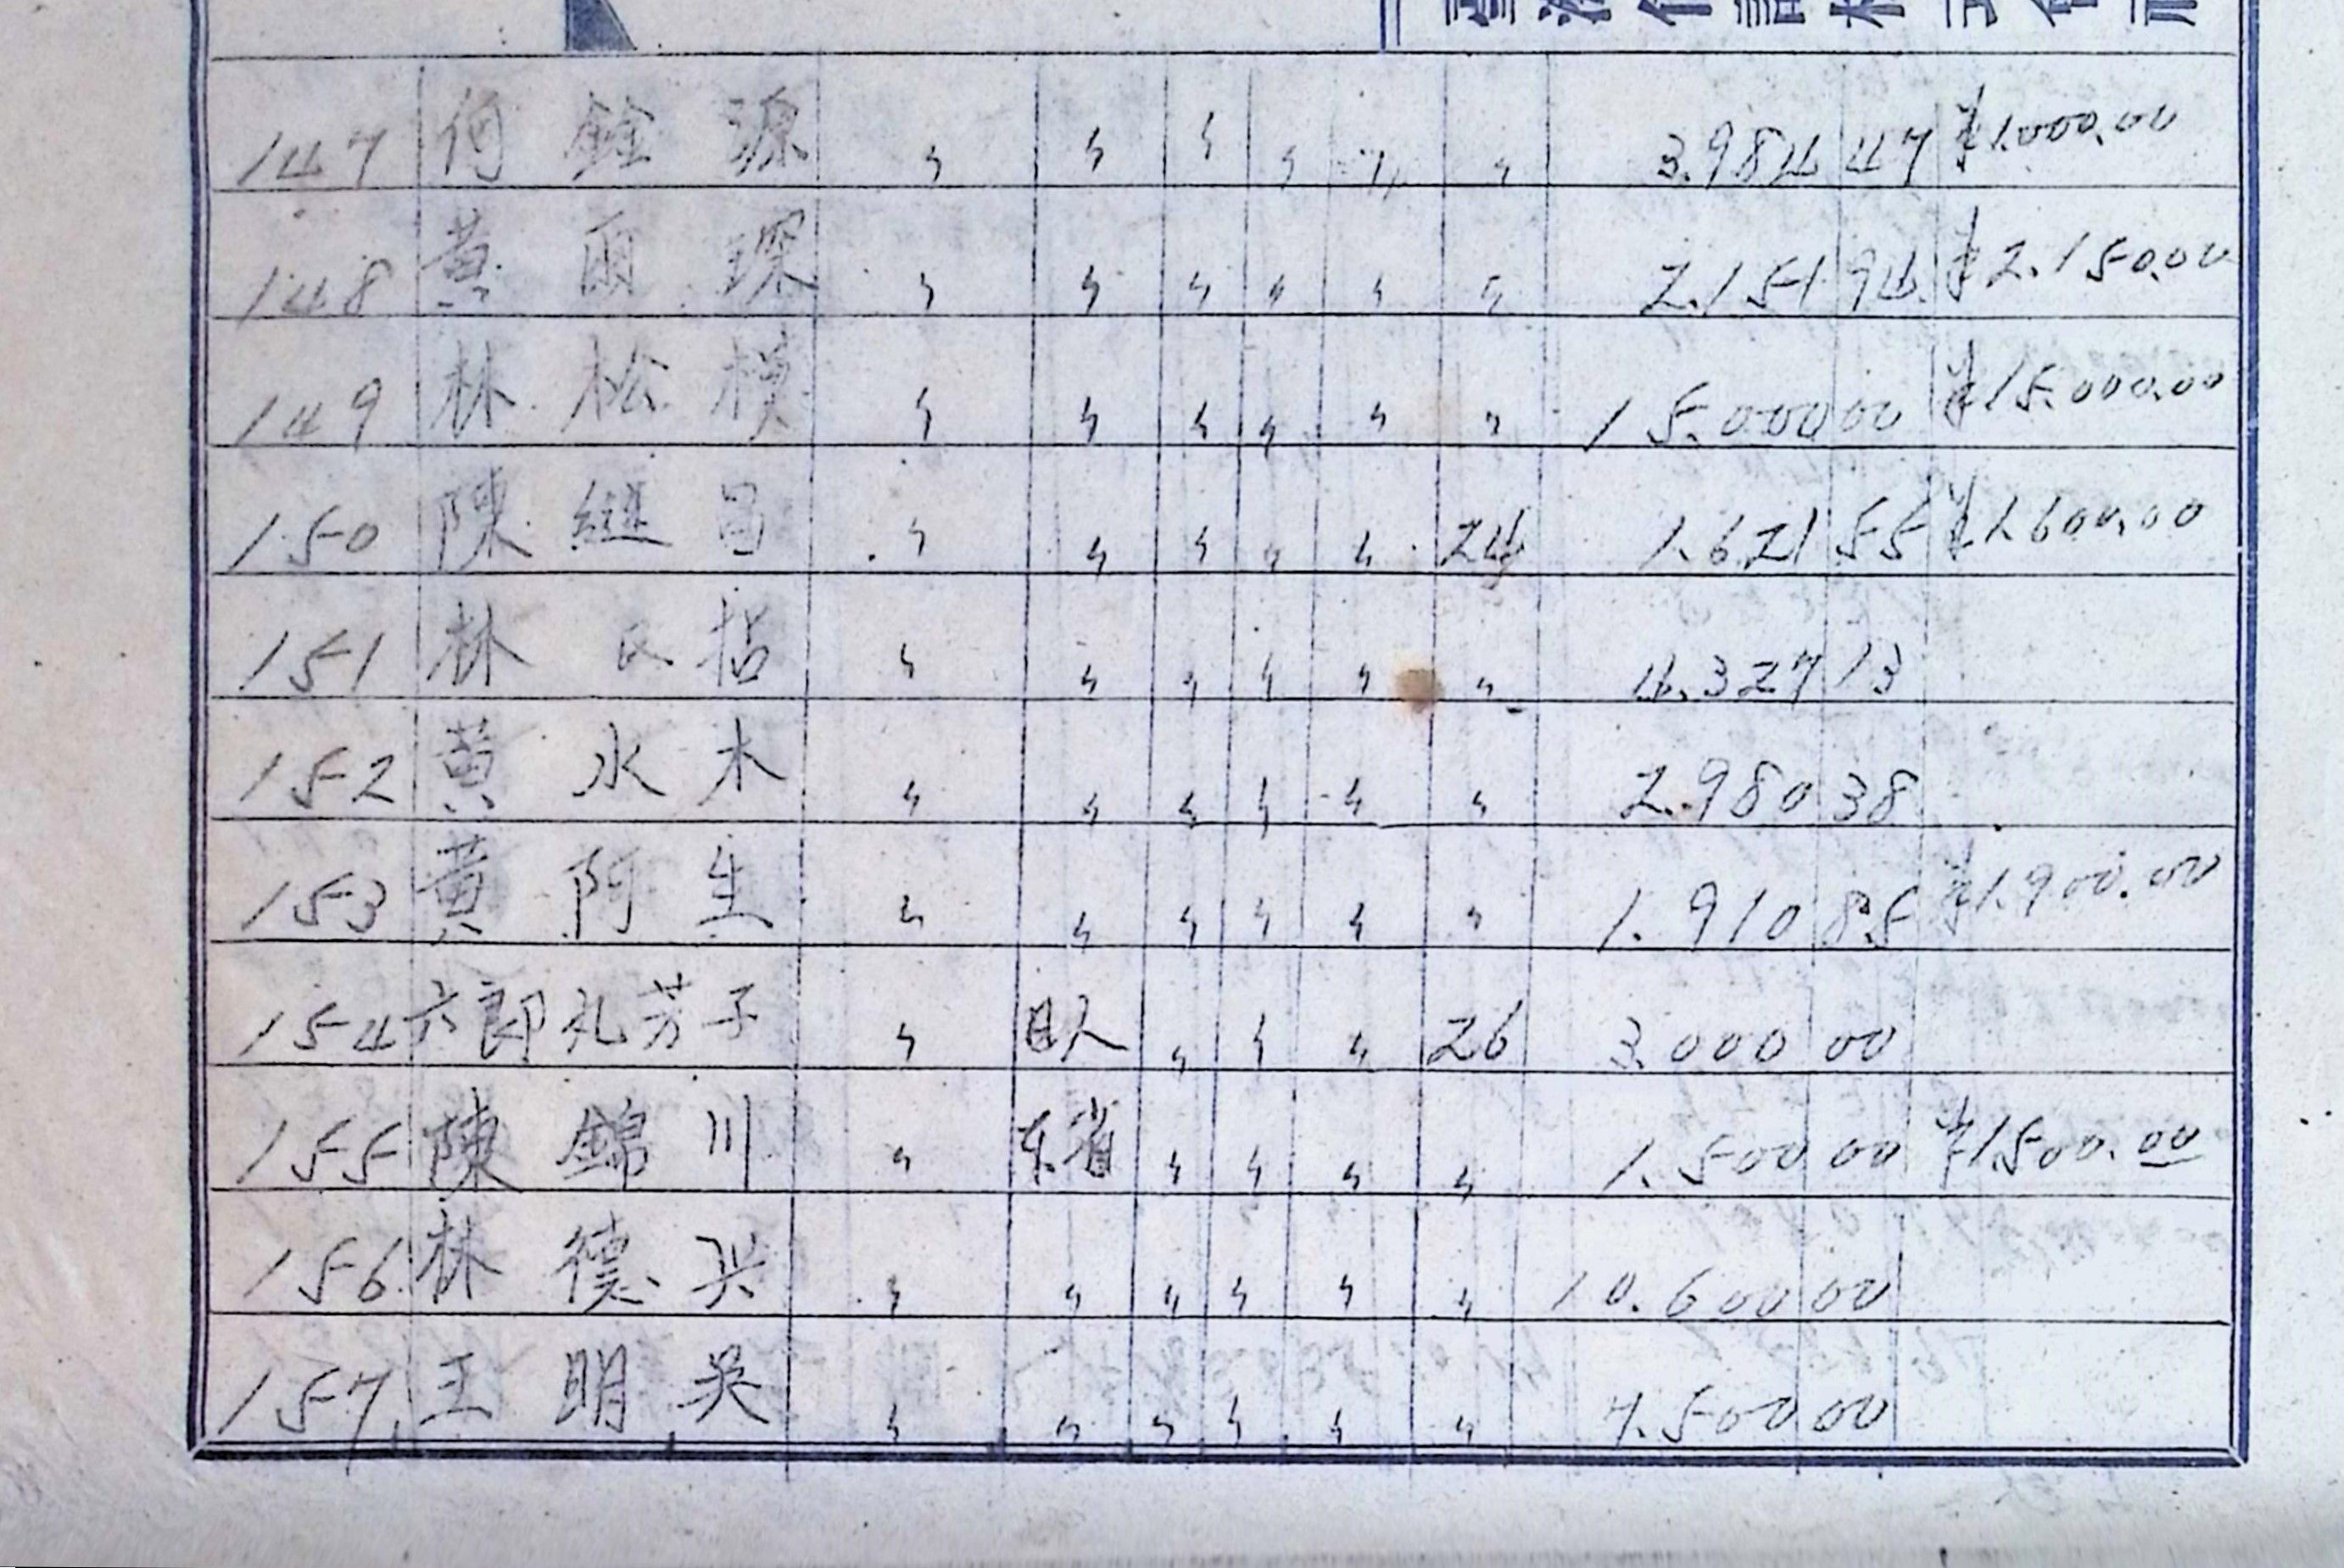 147 何銓源 〃 〃 〃 〃 〃 〃 3.984 47 ¥1.000.00
148 黄雨琛 〃 〃 〃 〃 〃 〃 2.151 94 ¥2.150.00
149 林松模 〃 〃 〃 〃 〃 〃 15.000 00 ¥15.000.00
150 陳継昌 〃 〃 〃 〃 〃 24 1.621 55 ¥1.600.00
151 林 〃 〃 〃 〃 〃 〃 4.327 13
152 黄水木 〃 〃 〃 〃 〃 〃 2.980 38
153 黄阿生 〃 〃 〃 〃 〃 〃 1.910 85 ¥1.900.00
154 六郎礼芳子 〃 日人 〃 〃 〃 26 3.000 00
155 陳錦川 〃 本省 〃 〃 〃 〃 1.500 00 ¥1.500.00
156 林德兴 〃 〃 〃 〃 〃 〃 10.600 00
157 王明 〃 〃 〃 〃 〃 〃 7.500 00